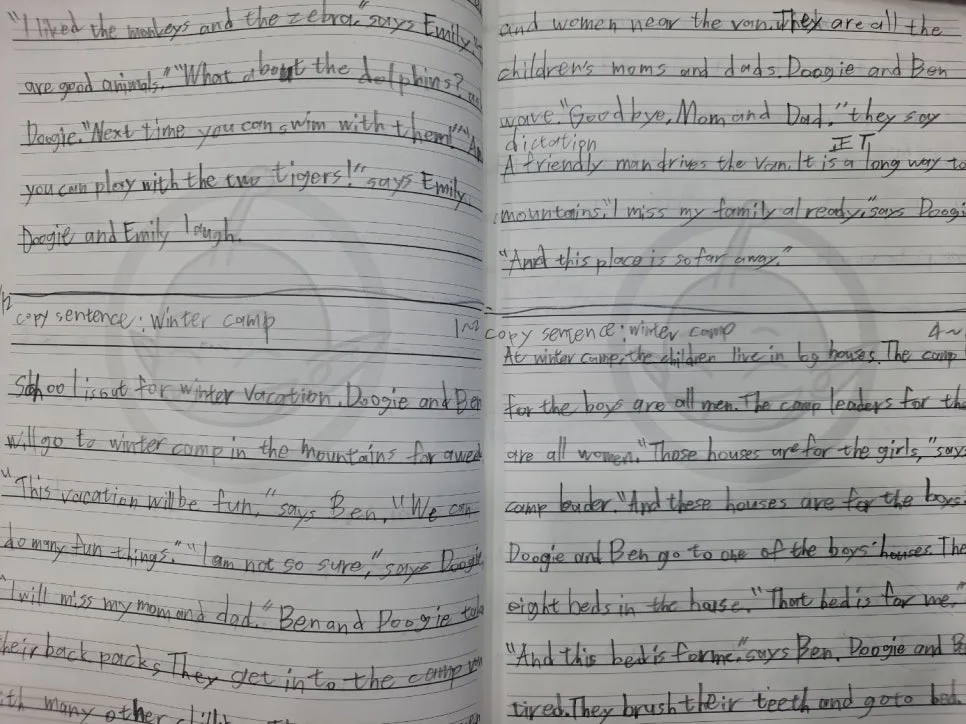 "I liked the monkeys and the zebra," says Emily.
are good animals." "What about the dolphins?"
Doogie. "Next time you can swim with them!"
you can play with the two tigers!" says Emily.
Doogie and Emily laugh.
copy sentence: Winter camp 1~
School is out for winter vacation. Doogie and Ben
will go to winter camp in the mountains for a
"This vacation will be fun," says Ben. "We can
do many fun things." "I am not so sure," says Doogie
"I will miss my mom and dad." Ben and Doogie
their back packs. They get in to the camp
with many other
and women near the van. They are all the
children's moms and dads. Doogie and Ben
wave. "Good bye, Mom and Dad," they say
dictation 正
A friendly man drives the van. It is a long way to
mountains. "I miss my family already," says Doogi
"And this place is so far away."
copy sentence: winter camp 4~
At winter camp, the children live in big houses. The camp
for the boys are all men. The camp leaders for the
are all women. "Those houses are for the girls," says
camp leader. "And these houses are for the boys.
Doogie and Ben go to one of the boys' houses. The
eight beds in the house. "That bed is for me,"
"And this bed is for me," says Ben. Doogie and Be
tired. They brush their teeth and go to bed.